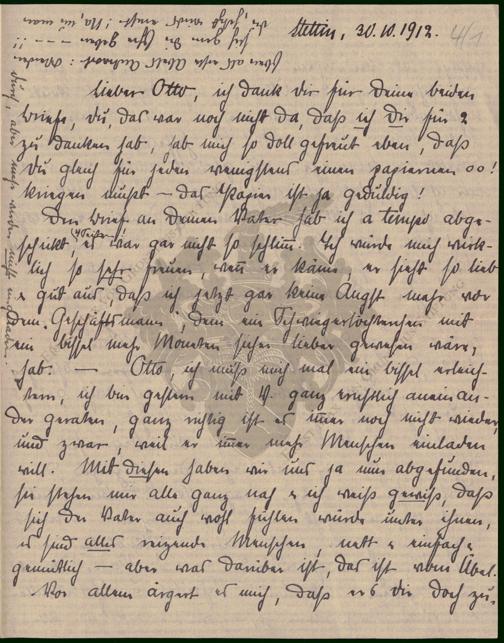 Stettin, 30.10.1912.
4/1
lieber Otto, ich dank dir für Deine beiden
Briefe, du, das war noch nicht da, daß ich Dir für 2
zu danken hab, hab mich so doll gefreut eben, daß
Du gleich für jeden wenigstens einen papiernen oo!
kriegen mußt – das Papier ist ja geduldig!
Den Brief an Deinen Vater hab ich a tempo abge-
schickt, es war gar nicht so schlimm. Ich würde mich wirk-
lich so sehr freuen, wenn er käme, er sieht so lieb
u gut aus, daß ich jetzt gar keine Angst mehr vor
dem "Geschäftsmann", dem ein Schwiegertöchterchen mit
ein bissel mehr Moneten sicher lieber gewesen wäre,
hab. — Otto, ich muß mich mal ein bissel erleich-
tern, ich bin gestern mit V. ganz ernstlich aneinan-
der geraten, ganz richtig ist es immer noch nicht wieder
und zwar, weil er immer mehr Menschen einladen
will. Mit diesen haben wir uns ja nun abgefunden,
sie stehen uns alle ganz nah u ich weiß gewiß, daß
sich der Vater auch wohl fühlen würde unter ihnen,
es sind alles reizende Menschen, nett u einfach,
gemütlich – aber was darüber ist, das ist vom Übel.
Vor allem ärgert es mich, daß er's dir doch zu-